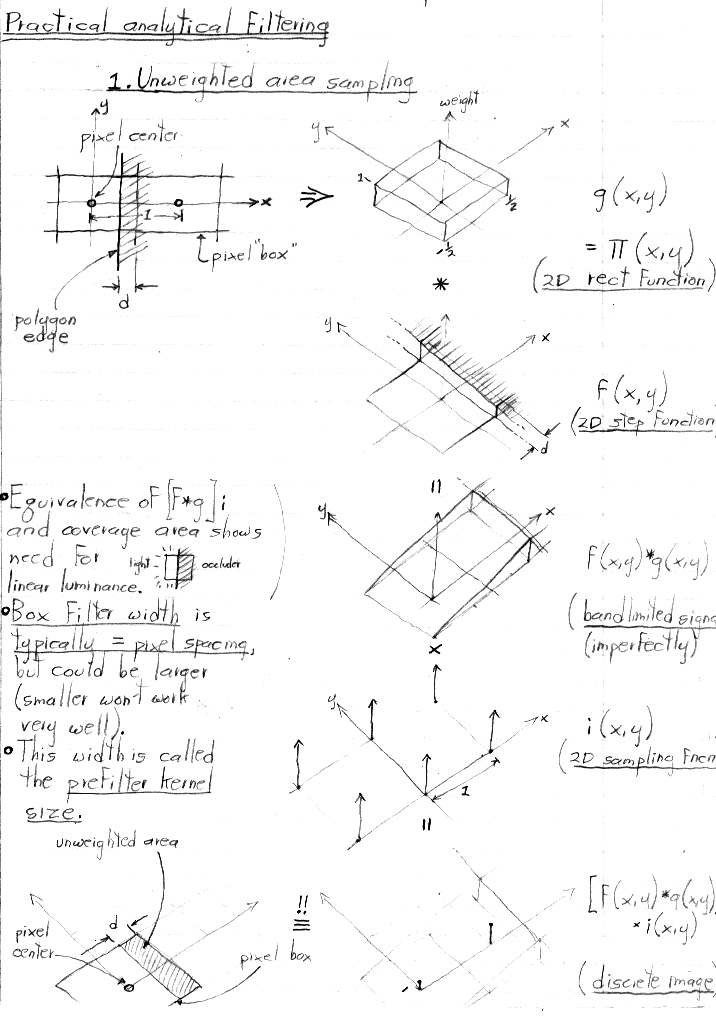 Practical analytical Filtering
1. Unweighted area sampling
y
pixel center
x
1
pixel "box"
d
polygon
edge
⇒
weight
y
x
1
1/2
-1/2
g(x,y)
= Π(x,y)
(2D rect Function)
*
y
x
d
F(x,y)
(2D step Function
• Equivalence of [F*g] i
and coverage area shows
need For
light
occluder
linear luminance.
• Box Filter width is
typically = pixel spacing,
but could be larger
(smaller won't work
very well).
• This width is called
the preFilter kernel
size.
=
y
x
F(x,y)*g(x,y)
(bandlimited signa
(imperfectly)
×
y
x
1
i(x,y)
(2D sampling Fncn
=
unweighted area
d
pixel
center
pixel box
!!
≡
[F(x,y)*g(x,y)
× i(x,y)
(discrete image)